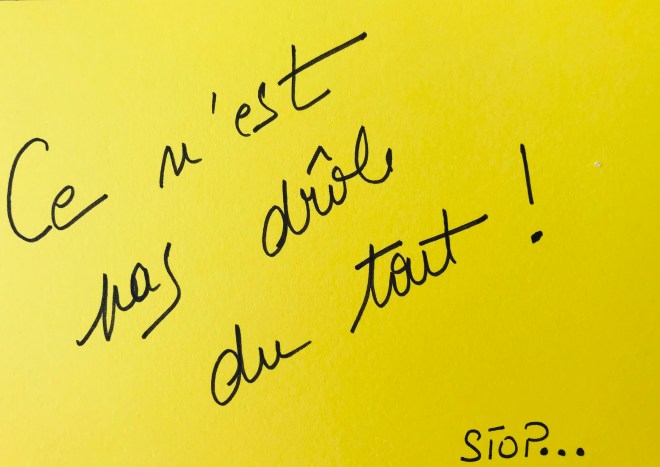 Ce n'est
pas drôle
du tout !
STOP...